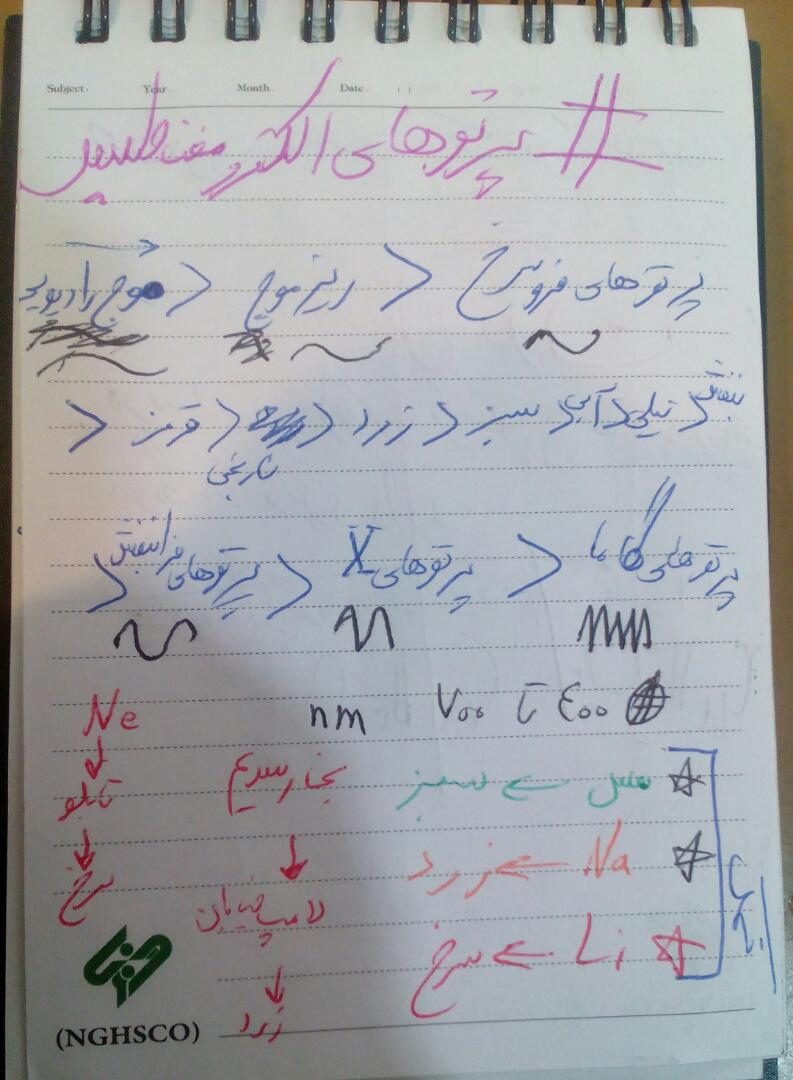 Subject: Year. Month. Date. ( )
# پرتوهای الکترومغناطیس
پرتوهای فروسرخ > ریزموج > موج رادیویی
بنفش > نیلی > آبی > سبز > زرد > نارنجی > قرمز >
پرتوهای گاما > پرتوهای X > پرتوهای فرابنفش >
۴۰۰ تا ۷۰۰ nm
مس ← سبز
Na ← زرد
Li ← سرخ
بخار سدیم
↓
لامپ خیابان
↓
زرد
Ne
↓
تابلو
↓
سرخ
(NGHSCO)